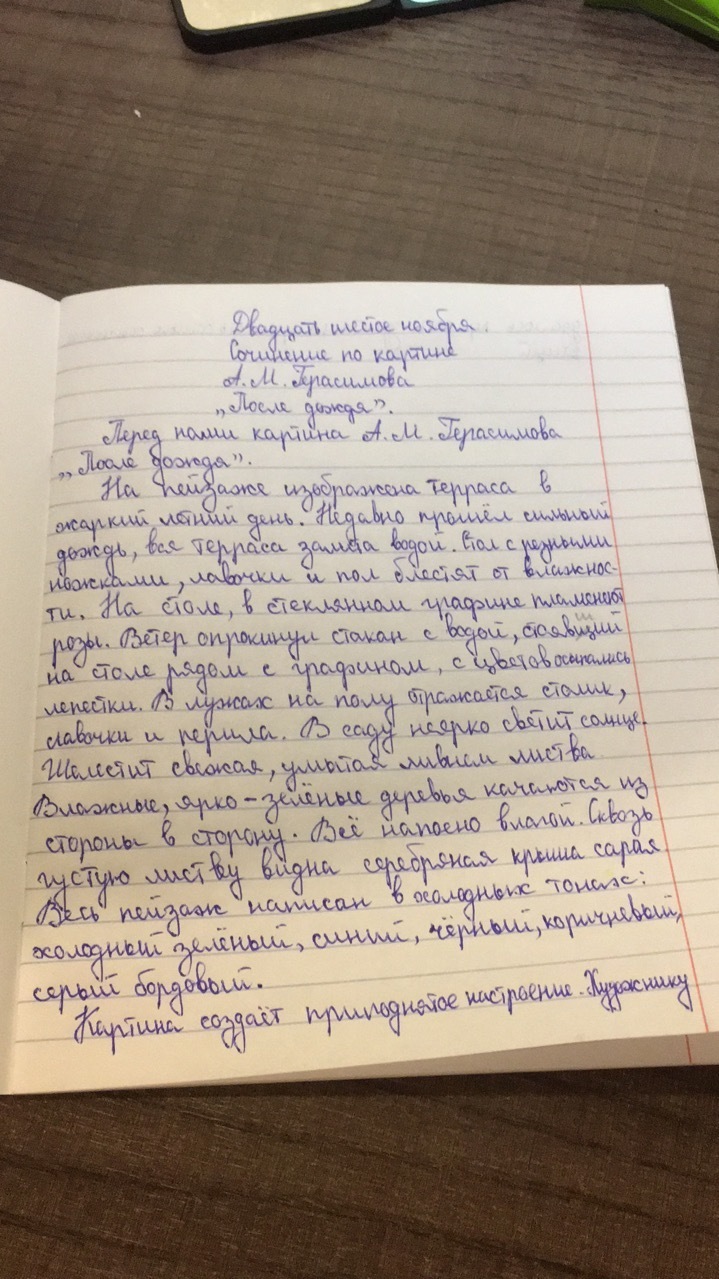 Двадцать шестое ноября.
Сочинение по картине
А. М. Герасимова
„После дождя”.
Перед нами картина А. М. Герасимова
„После дождя”.
На пейзаже изображена терраса в
жаркий летний день. Недавно прошёл сильный
дождь, вся терраса залита водой. Стол с резными
ножками, лавочки и пол блестят от влажнос-
ти. На столе, в стеклянном графине пламенеют
розы. Ветер опрокинул стакан с водой, стоявший
на столе рядом с графином, с цветов осыпались
лепестки. В лужах на полу отражается столик,
лавочки и перила. В саду неярко светит солнце.
Шелестит свежая, умытая ливнем листва
Влажные, ярко-зелёные деревья качаются из
стороны в сторону. Всё напоено влагой. Сквозь
густую листву видна серебряная крыша сарая.
Весь пейзаж написан в холодных тонах:
холодный зелёный, синий, чёрный, коричневый,
серый бордовый.
Картина создаёт приподнятое настроение. Художнику